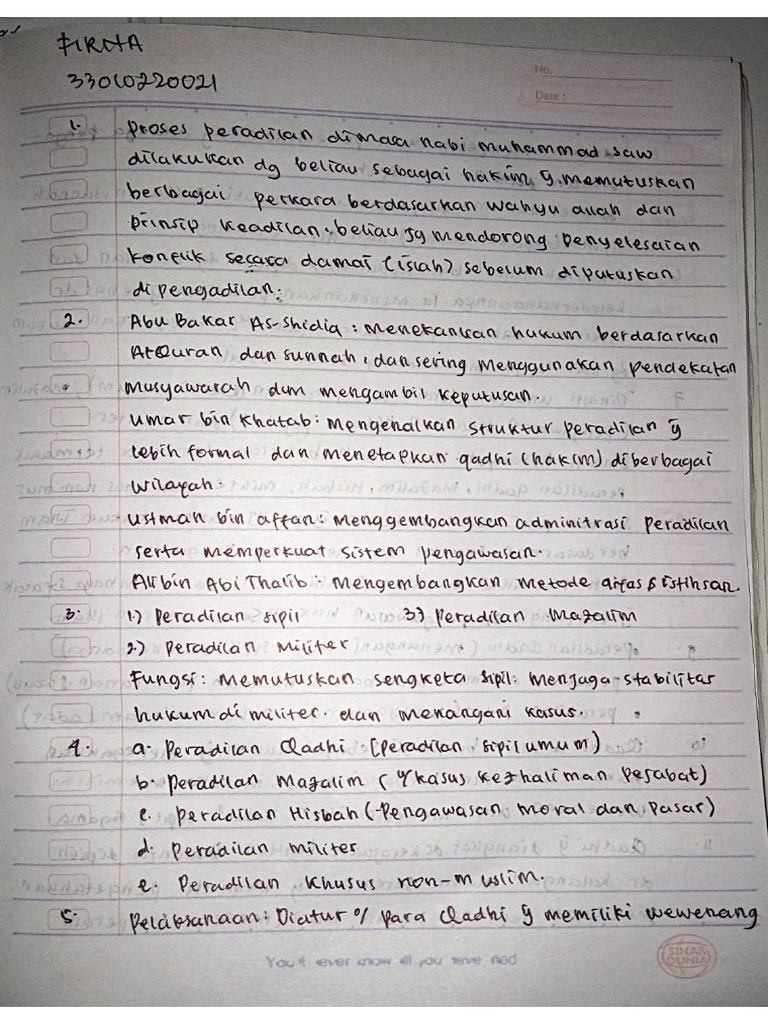 FIRNA
33010220021
No.
Date :
1. Proses peradilan dimasa nabi muhammad saw
dilakukan dg beliau sebagai hakim yg memutuskan
berbagai perkara berdasarkan wahyu allah dan
prinsip keadilan. beliau jg mendorong penyelesaian
konflik secara damai (islah) sebelum diputuskan
di pengadilan.
2. Abu Bakar As-shidiq : menekankan hukum berdasarkan
AlQuran dan sunnah, dan sering menggunakan pendekatan
musyawarah dlm mengambil keputusan.
umar bin Khatab : mengenalkan struktur peradilan yg
lebih formal dan menetapkan qadhi (hakim) diberbagai
wilayah.
ustman bin affan : menggembangkan adminitrasi peradilan
serta memperkuat sistem pengawasan.
Ali bin Abi Thalib : mengembangkan metode qiyas & istihsan.
3. 1.) Peradilan sipil 3) Peradilan Mazalim
2.) Peradilan militer
Fungsi : memutuskan sengketa sipil. menjaga stabilitas
hukum di militer. dan menangani kasus.
4. a. Peradilan Qadhi (peradilan sipil umum)
b. Peradilan Mazalim ( kasus kezhaliman pejabat)
c. Peradilan Hisbah (Pengawasan moral dan pasar)
d. Peradilan militer
e. Peradilan khusus non-muslim.
5. Pelaksanaan : Diatur o/ para Qadhi yg memiliki wewenang
You'll ever know all you need
SINAR
DUNIA